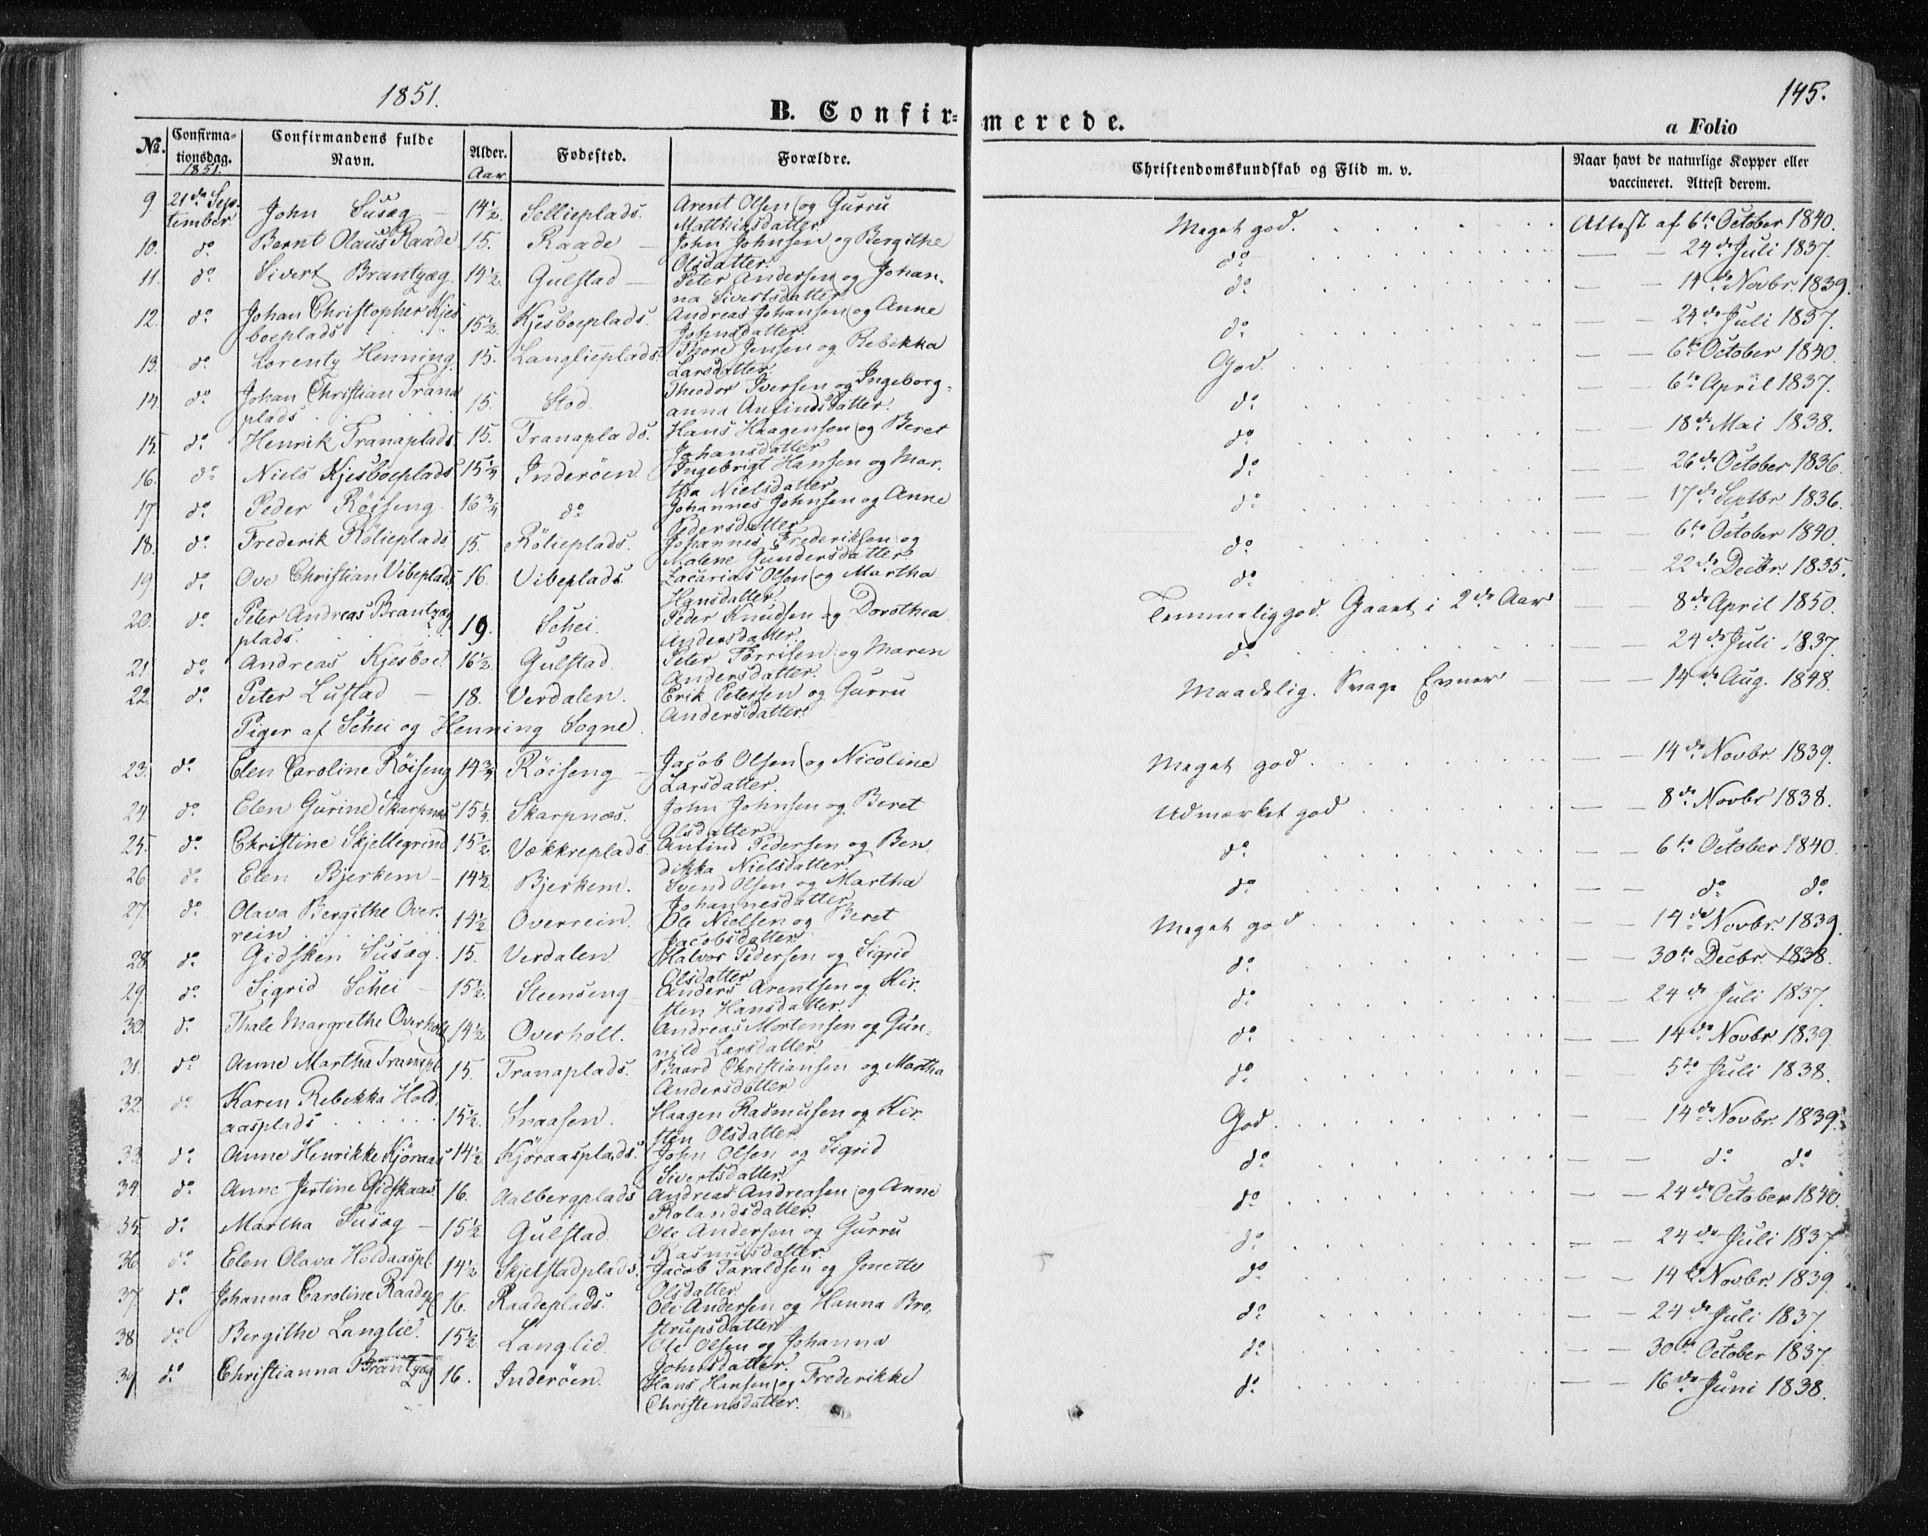 1851.
145.
B. Confir=
merede.
a Folio
No.
Confirma-
tionsdag.
1851.
Confirmandens fulde
Navn.
Alder.
Aar.
Fødested.
Forældre.
Christendomskundskab og Flid m. v.
Naar havt de naturlige Kopper eller
vaccineret. Attest derom.
9 21de Sep- John Susæg 14½. Sellieplads. Arent Olsen og Gurru Meget god. Attest af 6te October 1840.
tember Matthiasdatter
10. do Bernt Olaus Raade 15. Raade John Johnsen og Bergithe do — — 24de Juli 1837.
Olsdatter.
11. do Sivert Brantzæg. 14½. Gulstad Peter Andersen og Johan- do — — 14de Novbr. 1839.
na Sivertsdatter
12. do Johan Christopher Kjes 15½. Kjesboeplads. Andreas Johansen og Anne do — — 24de Juli 1837.
boeplads Johnsdatter.
13. do Lorentz Henning. 15. Langlieplads. Thore Jensen og Rebekka God. — — 6te October 1840.
Larsdatter.
14. do Johan Christian Trana 15. Stod. Theodor Iversen og Ingeborg- do — — 6te April 1837.
plads anna Anfindsdatter.
15. do Henrik Tranaplads 15. Tranaplads. Hans Haagensen og Beret do — — 18de Mai 1838.
Johansdatter
16. do Niels Kjesboeplads 15¼ Inderöen. Ingebrigt Hansen og Mar- do — — 26de October 1836.
tha Nielsdatter
17. do Peder Röiseng. 16¾ do Johannes Johnsen og Anne do — — 17de Septbr 1836.
Pedersdatter
18. do Frederik Rölieplads 15. Rölieplads. Johannes Frederiksen og do — — 6te October 1840.
Malene Gundersdatter
19. do Ove Christian Vibeplads 16. Vibeplads. Zacarias Olsen og Martha do — — 22de Decbr. 1835.
Hansdatter.
20. do Peter Andreas Brantzæg 19. Schei. Peder Knudsen og Dorothea Temmelig god. Gaaet i 2de Aar — 8de April 1850.
plads. Andersdatter.
21 do Andreas Kjesboe. 16½. Gulstad. Peter Torrisen og Maren do — — 24de Juli 1837.
Andersdatter.
22. do Peter Lustad 18. Verdalen. Erik Petersen og Gurru Maadelig. Svage Evner — — — 14de Aug. 1848.
Andersdatter.
Piger af Schei og Henning Sogne.
23. do Elen Caroline Röiseng 14¾ Röiseng Jacob Olsen og Nicoline Meget god. — — 14de Novbr. 1839.
Larsdatter.
24 do Elen Gurine Skarpnæs 15¼. Skarpnæs. John Johnsen og Beret Udmærket god — — 8de Novbr 1838.
Olsdatter
25. do Christine Skjellegrind 15½. Vækkreplads. Anfind Pedersen og Ben- do — — 6te October 1840.
dikka Nielsdatter
26 do Elen Bjerkem 14½ Bjerkem. Svend Olsen og Martha do — — do do
Johannesdatter
27 do Olava Bergithe Over- 14½ Overrein. Ole Nielsen og Beret Meget god — — 14de Novbr. 1839.
rein Jacobsdatter.
28 do Gidsken Susæg. 15. Verdalen Halvor Pedersen og Sigrid do — — 30te Decbr. 1838.
Olsdatter
29. do Sigrid Schei 15½. Steenseng Anders Arentsen og Kir- do — — 24de Juli 1837.
sten Hansdatter.
30. do Thale Margrethe Overholt 14½ Overholt. Andreas Mortensen og Gun- do — — 14de Novbr. 1839
nild Larsdatter
31. do Anne Martha Tranapl. 15. Tranaplads. Baard Christiansen og Martha do — — 5te Juli 1838.
Andersdatter
32. do Karen Rebekka Hold 15½. Snaasen. Haagen Rasmusen og Kir- God. — — 14de Novbr. 1839.
aasplads sten Olsdatter
33. do Anne Henrikke Kjöraas 14½ Kjöraasplads. John Olsen og Sigrid do — — do do
Sivertsdatter
34. do Anne Jertine Gidskaas 16. Aalbergplads Andreas Andreasen og Anne do — — 24de October 1840.
Rolandsdatter.
35. do Martha Susæg 15½ Gulstad. Ole Andersen og Gurru do — — 24de Juli 1837.
Rasmusdatter
36 do Elen Olava Holdaaspl. 14½ Skjelstadplads. Jacob Taraldsen og Jonette do — — 14de Novbr. 1839.
Olsdatter
37. do Johanna Caroline Raadepl 16. Raadeplads. Ole Andersen og Hanna Bro- do — — 24de Juli 1837.
strupsdatter
38. do Bergithe Langlie. 15½ Langlie. Ole Olsen og Johanna do — — 30te October 1837.
Johnsdatter.
39 do Christianna Brantzæg 16. Inderöen. Hans Hansen og Frederikke do — — 16de Juni 1838.
Christensdatter.